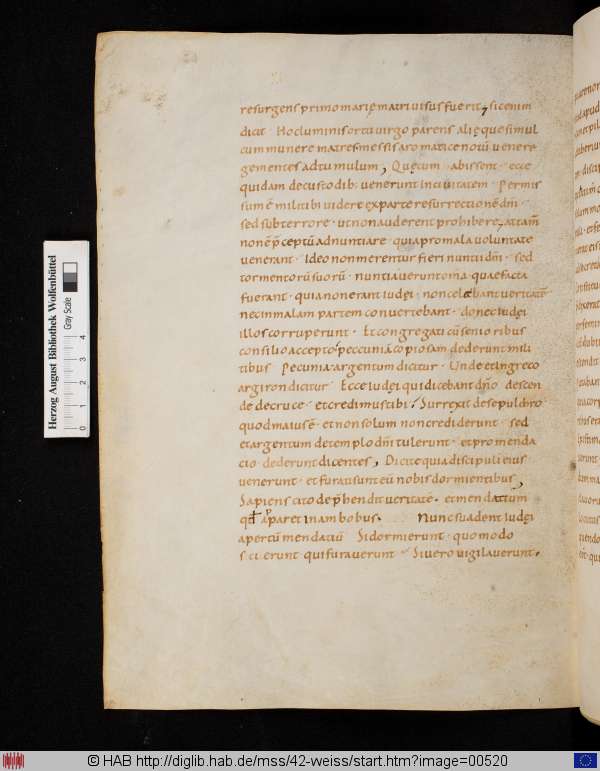 resurgens primo marię matri uisus fuerit, sic enim
dicit · Hoc luminis ortu uirgo parens alięque simul
cum munere matres messis aromatice noui uenere
gementes ad tumulum, Quę cum · abissent · ecce
quidam de custodib; uenerunt in ciuitatem · Permis
sum ē militibi uidere ex parte resurrectionē dn̄i ·
sed sub terrore · ut non auderent prohibere, attam̄
non ē p̄ceptū adnuntiare · quia pro mala uoluntate
uenerant · Ideo non merentur fieri nuntii dn̄i · sed
tormentorū suorū · nuntiauerunt om̄a quae facta
fuerant · quia non erant iudęi · non celebant ueritatē
nec in malam partem conuertebant · donec iudęi
illos corruperunt · Et congregati cū senioribus
consilio accepto · peccuniā copiosam dederunt mili
tibus · Pecunia · argentum dicitur · Unde et in greco
argiron dicitur · Ecce iudęi qui dicebant dn̄o descen
de de cruce · et credimus tibi · Surrexit de sepulchro
quod maius ē · et non solum non crediderunt · sed
et argentum de templo dn̄i tulerunt · et pro menda
cio · dederunt dicentes, Dicite quia discipuli eius
uenerunt · et furauі sunt eū nobis dormientibus,
Sapiens cito dep̄hendit ueritatē · et mendatium
qđ apparet in ambobus · Nunc suadent iudęi
apertū mendaciū Si dormierunt · quomodo
scierunt qui furauerunt · Si uero uigilauerunt ·
Herzog August Bibliothek Wolfenbüttel
Gray Scale
0 1 2 3 4
© HAB http://diglib.hab.de/mss/42-weiss/start.htm?image=00520